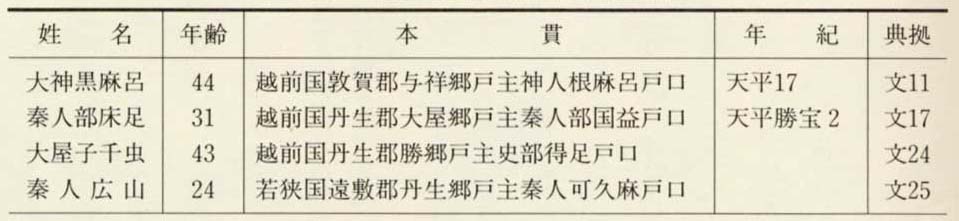 姓名 年齢 本貫 年紀 典拠
大神黒麻呂 44 越前国敦賀郡与祥郷戸主神人根麻呂戸口 天平17 文11
秦人部床足 31 越前国丹生郡大屋郷戸主秦人部国益戸口 天平勝宝2 文17
大屋子千虫 43 越前国丹生郡勝郷戸主史部得足戸口 文24
秦人広山 24 若狭国遠敷郡丹生郷戸主秦人可久麻戸口 文25